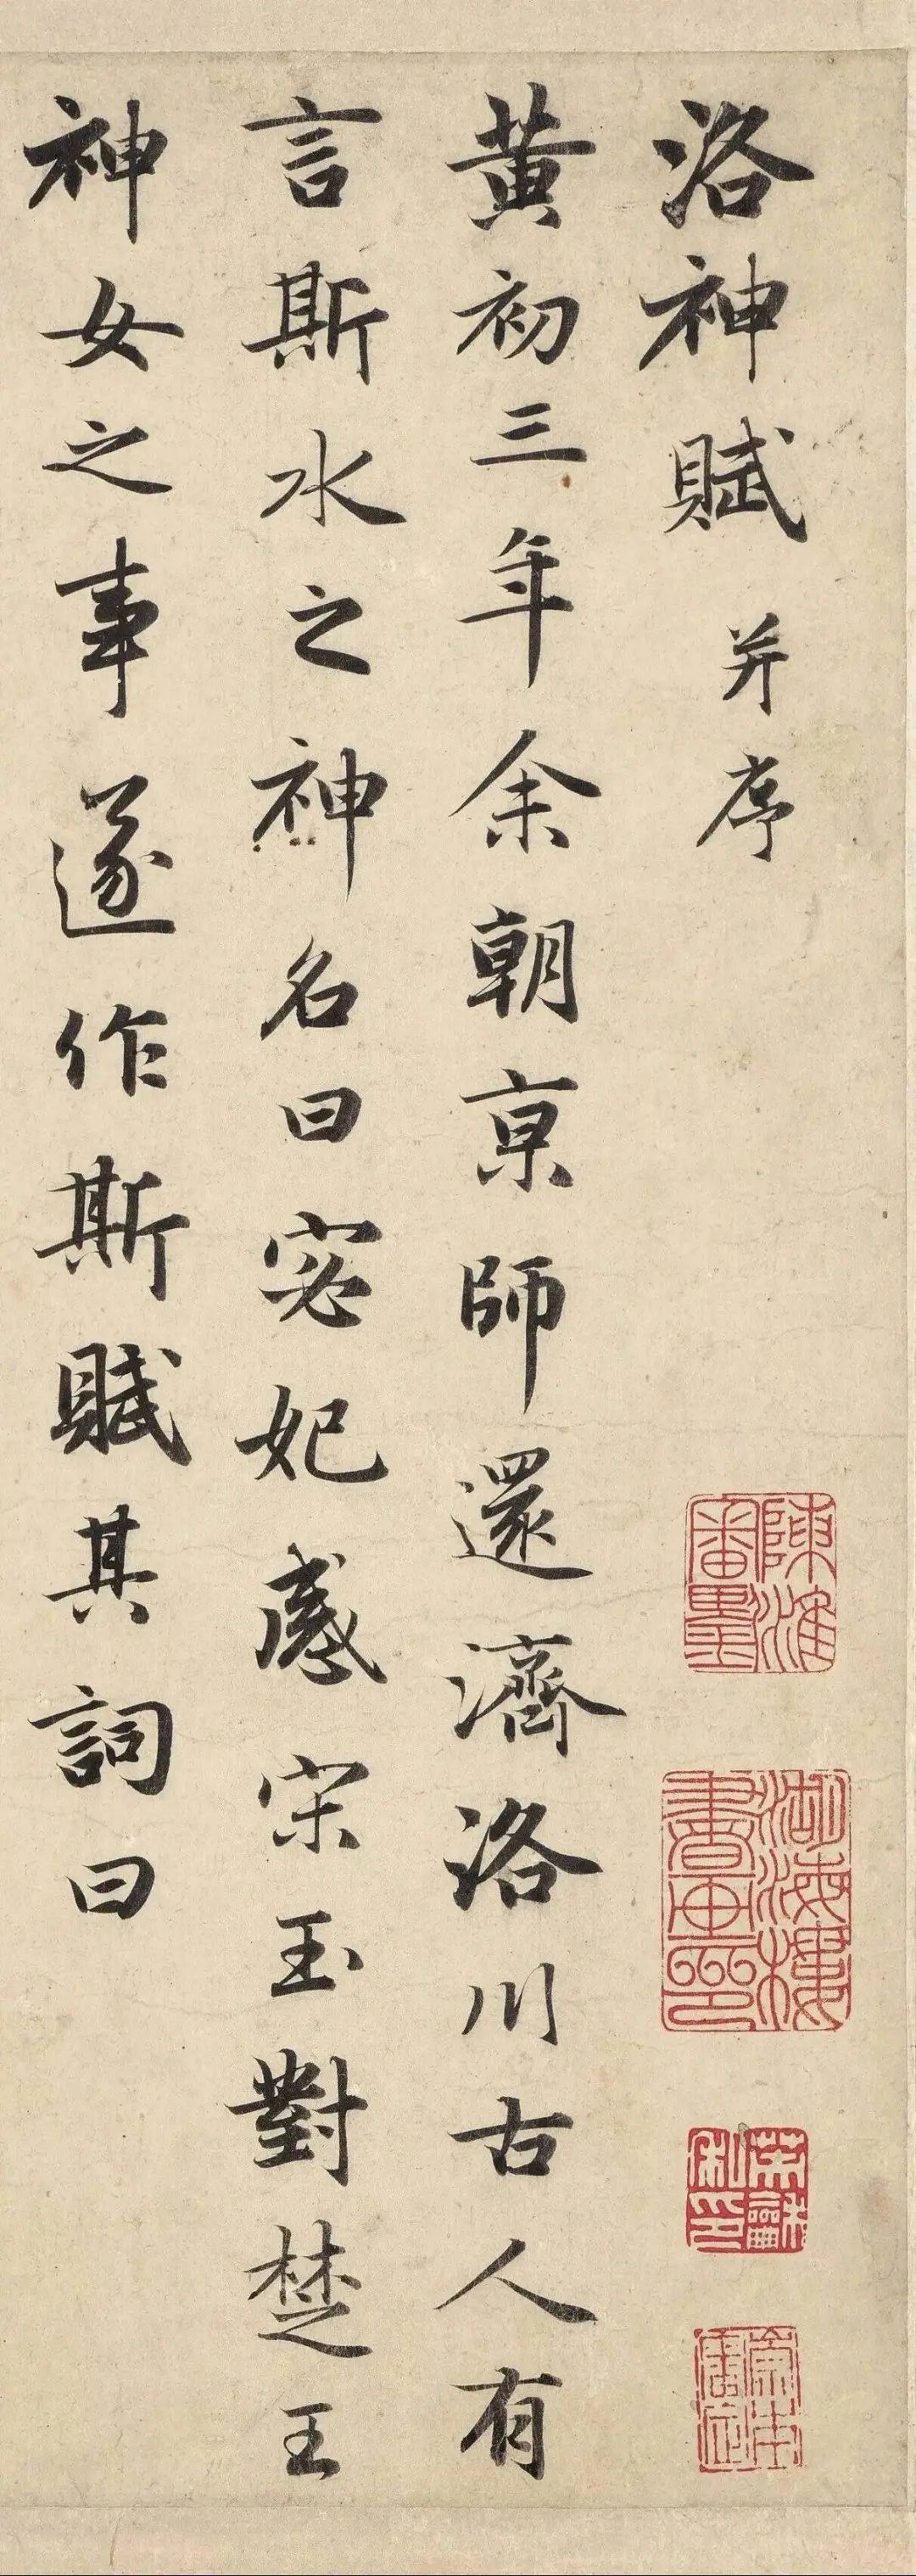 洛神賦 并序
黄初三年余朝京師還濟洛川古人有
言斯水之神名曰宓妃感宋玉對楚王
神女之事遂作斯賦其詞曰
陳淮審墨
御海樓書画印